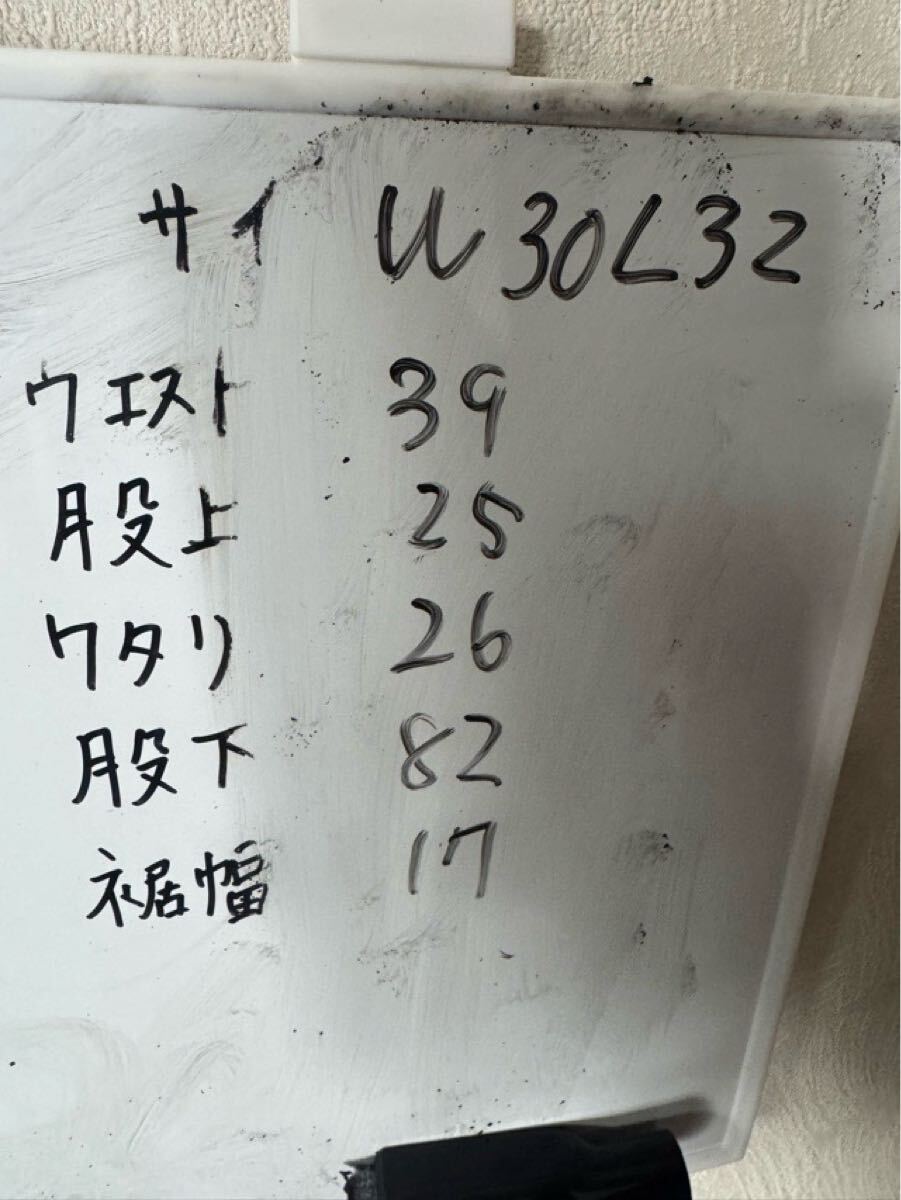 サイ W30L32
ウエスト 39
股上 25
ワタリ 26
股下 82
裾幅 17